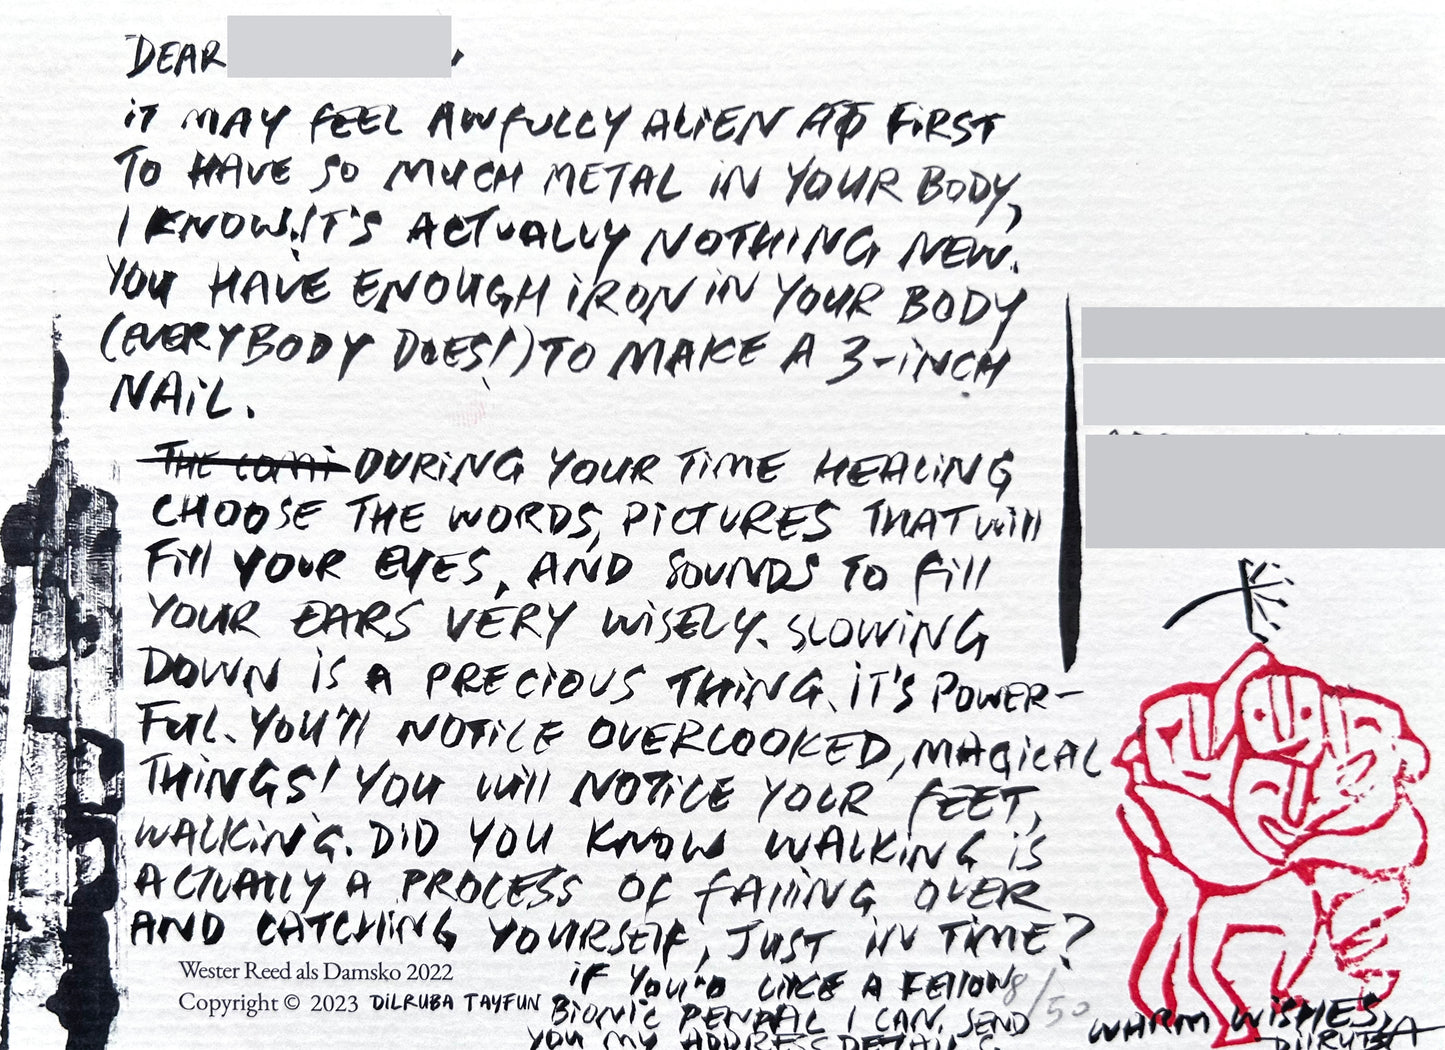 DEAR ,
iT MAY FEEL AWFULLY ALiEN AT FiRST
TO HAVE SO MUCH METAL iN YOUR BODY,
I KNOW. IT'S ACTUALLY NOTHiNG NEW.
YOU HAVE ENOUGH iRON iN YOUR BODY
(EVERYBODY DOES!) TO MAKE A 3-iNCH
NAiL.
THE comi DURiNG YOUR TiME HEALiNG
CHOOSE THE WORDS, PiCTURES THAT will
Fill YOUR EYES, AND SOUNDS TO Fill
YOUR EARS VERY WiSELY. SLOWiNG
DOWN iS A PRECiOUS THiNG. iT'S POWER-
FUL. YOU'll NOTiCE OVERLOOKED, MAGiCAL
THiNGS! YOU will NOTiCE YOUR FEET,
WALKiNG. DiD YOU KNOW WALKiNG iS
ACTUAllY A PROCESS OF FAlliNG OVER
AND CATCHiNG YOURSElF, JUST iN TiME?
iF YOU'D LiKE A FEllOW
BiONiC PENPAL I CAN SEND
YOU MY ADDRESS DETAiLS.
Wester Reed als Damsko 2022
Copyright © 2023 DiLRUBA TAYFUN
8/50
WARM WiSHES,
DiLRUBA